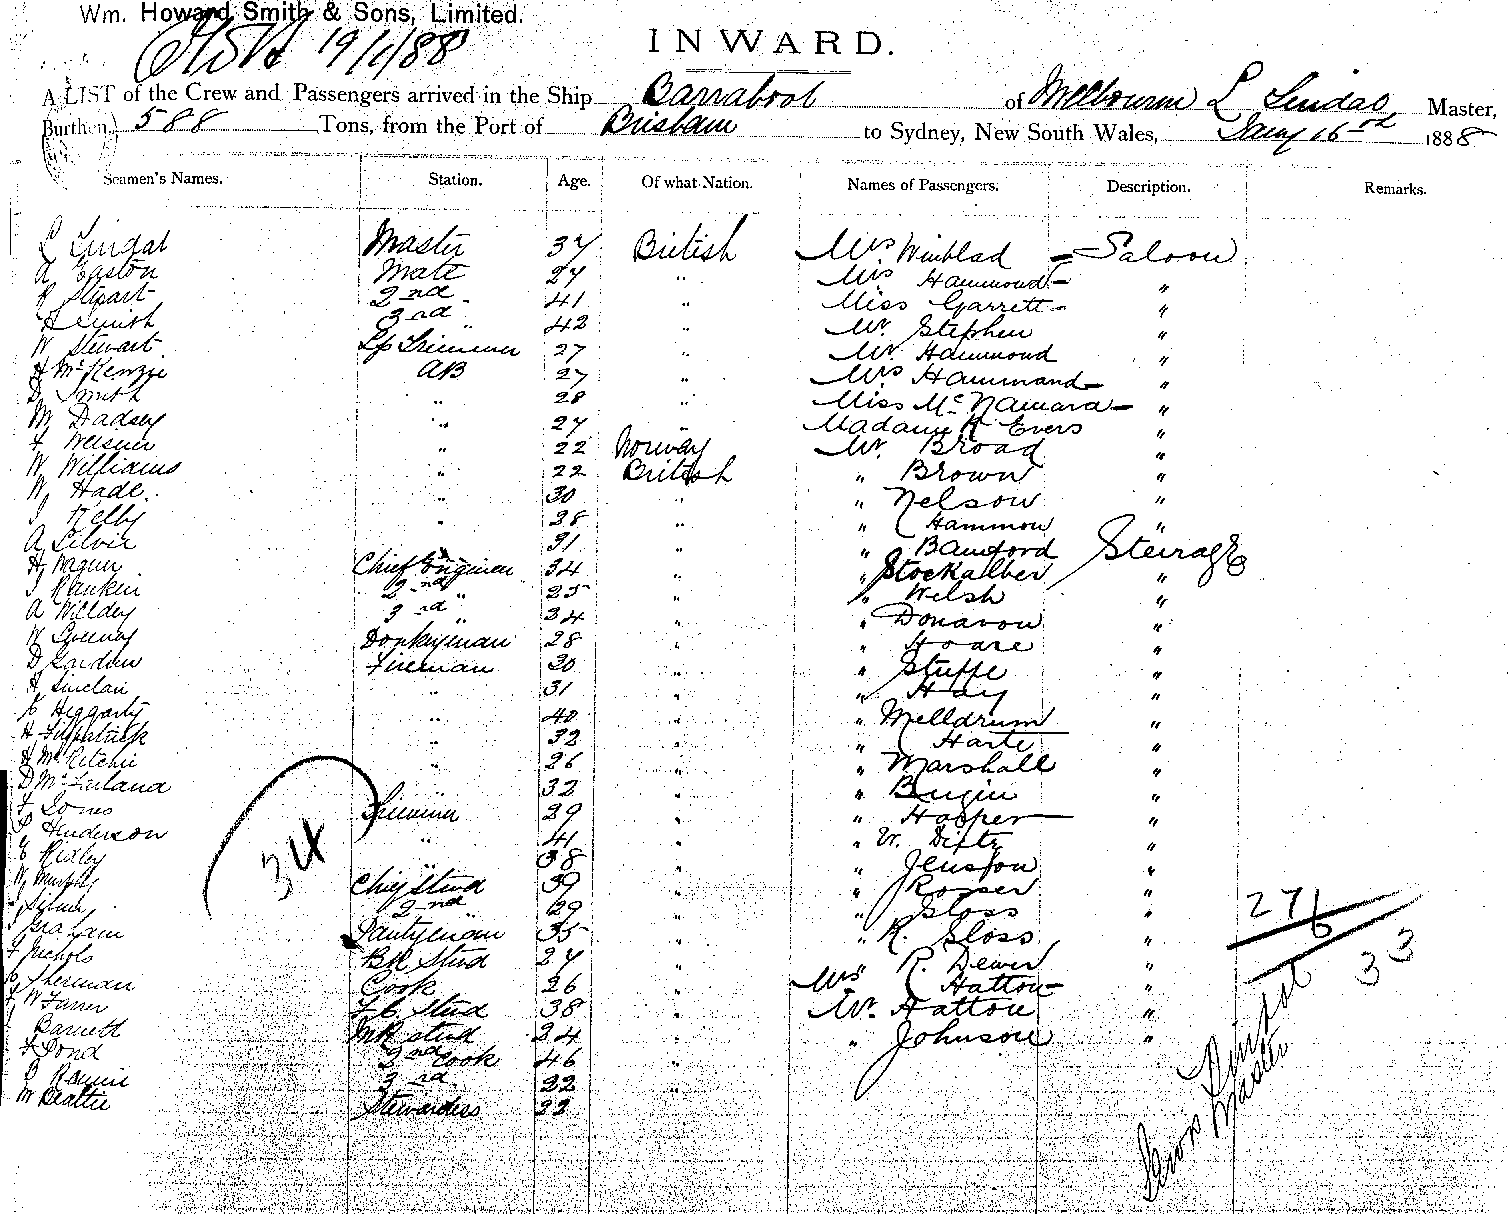 Wm. Howard Smith & Sons, Limited.
19/1/88
INWARD.
A LIST of the Crew and Passengers arrived in the Ship Barrabool of Melbourne L Lindal Master,
Burthen, 588 Tons, from the Port of Brisbane to Sydney, New South Wales, Jany 16th 1888
Seamen's Names. Station. Age. Of what Nation. Names of Passengers. Description. Remarks.
L Lindal Master 37 British Mrs Winblad Saloon
A Easton Mate 27 " Mrs Hammond "
R Stuart 2nd 41 " Miss Garrett "
Smith 3rd " 42 Mr. Stephen "
W Stewart Lp Trimmer 27 " Mr. Hammond "
McKenzie AB 27 " Mrs Hammand "
D Smith " 28 " Miss McNamara "
M Dadsey " 27 " Madame Evers "
F " 22 Norway Mr. Broad "
W Williams " 22 British " Brown "
W Hade. " 30 " " Nelson "
J Kelly " 28 " " Hammon "
A Silvir 31 " " Bamford Steirage
H Chief Engineer 34 " " Stockalber "
J Rankin 2nd " 25 " " Welsh "
A Willdey 3rd " 34 " " Donavon "
W Sweeney Donkeyman 28 " " Hoare "
D Gordon Fireman 30 " " Stuffe "
A Sinclair " 31 " " Hay "
Heggarty " 40 " " Melldrum "
H Fitzpatrick " 32 " " Harte "
McRitchie " 26 " " Marshall "
D McFarland 32 " "
F Jones Trimmer 29 " " Hooper "
Henderson " 41 " "
Ridley " 38 " "
W Murphy Chief Stwd 39 " " Rosser "
2nd " 29 " " Gloss "
Graham Pantryman 35 " " R. Gloss "
F Nichols BR Stwd 27 " R. Dewer "
Sherman Cook 26 " Mrs Hatton "
W Farrer F.C Stwd 38 " Mr. Hatton "
Barnett MR stwd 24 " " Johnson "
Pond 2nd Cook 46 "
3rd " 22 "
M Beattie Stewardess 22
34
27/6
33
Lindal
Master